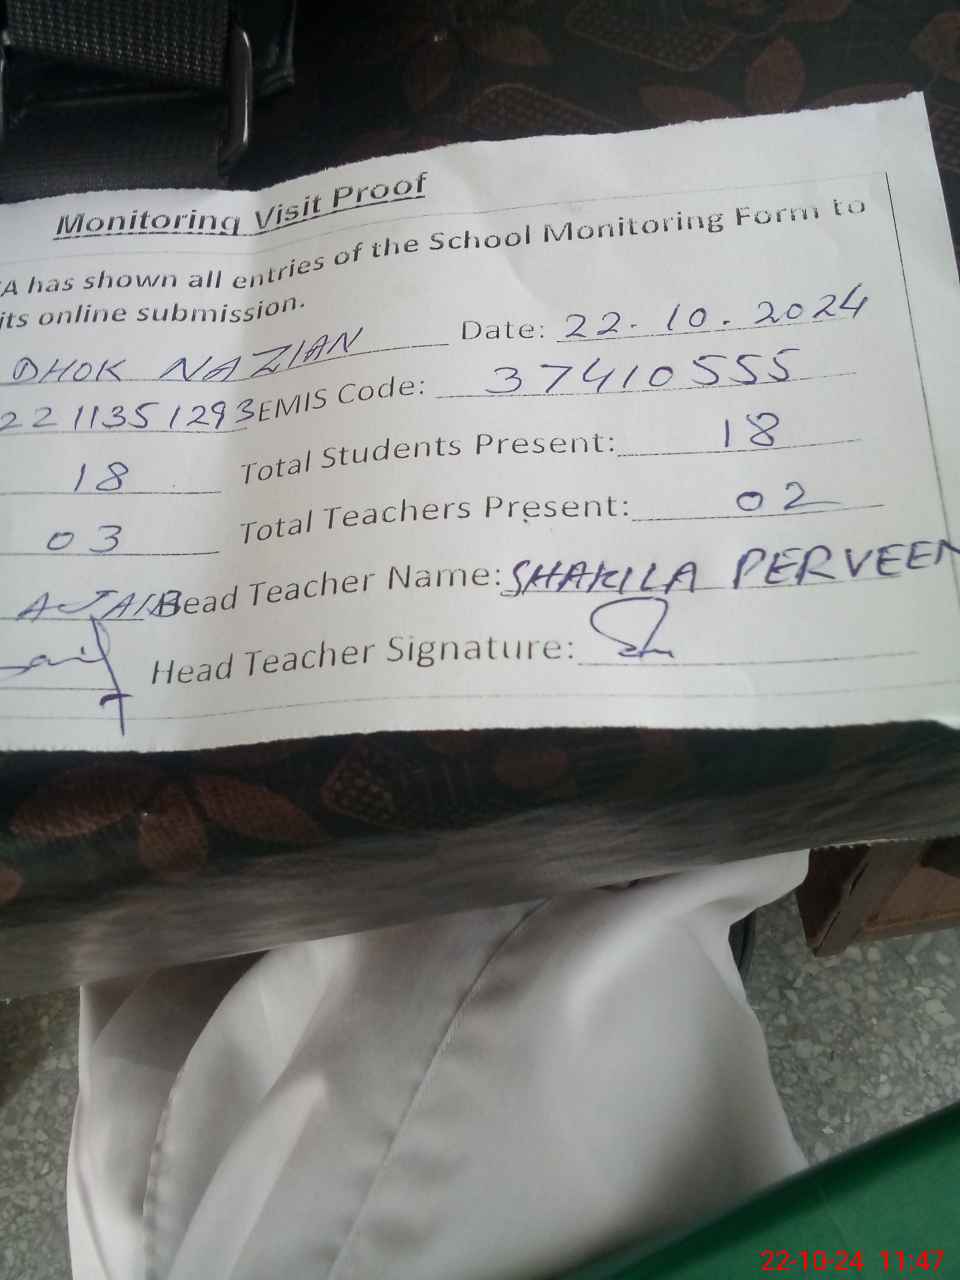 Monitoring Visit Proof
A has shown all entries of the School Monitoring Form to
its online submission.
DHOK NAZIAN Date: 22.10.2024
221135 1293 EMIS Code: 37410555
18 Total Students Present: 18
03 Total Teachers Present: 02
AJAIB Head Teacher Name: SHAKILA PERVEEN
Head Teacher Signature:
22-10-24 11:47